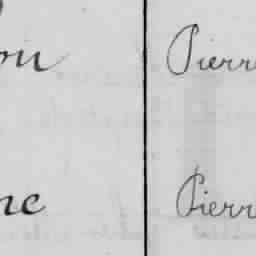 on Pierr
ne Pierr